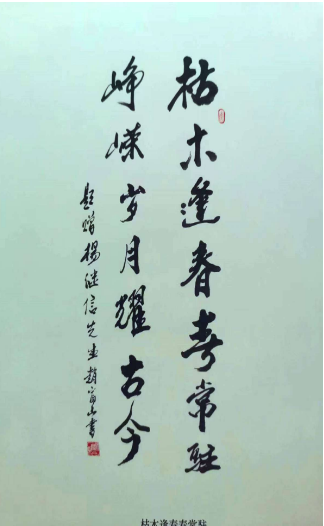 枯木逢春春常驻
峥嵘岁月耀古今
题赠杨继信先生赵富山书
枯木逢春春常驻